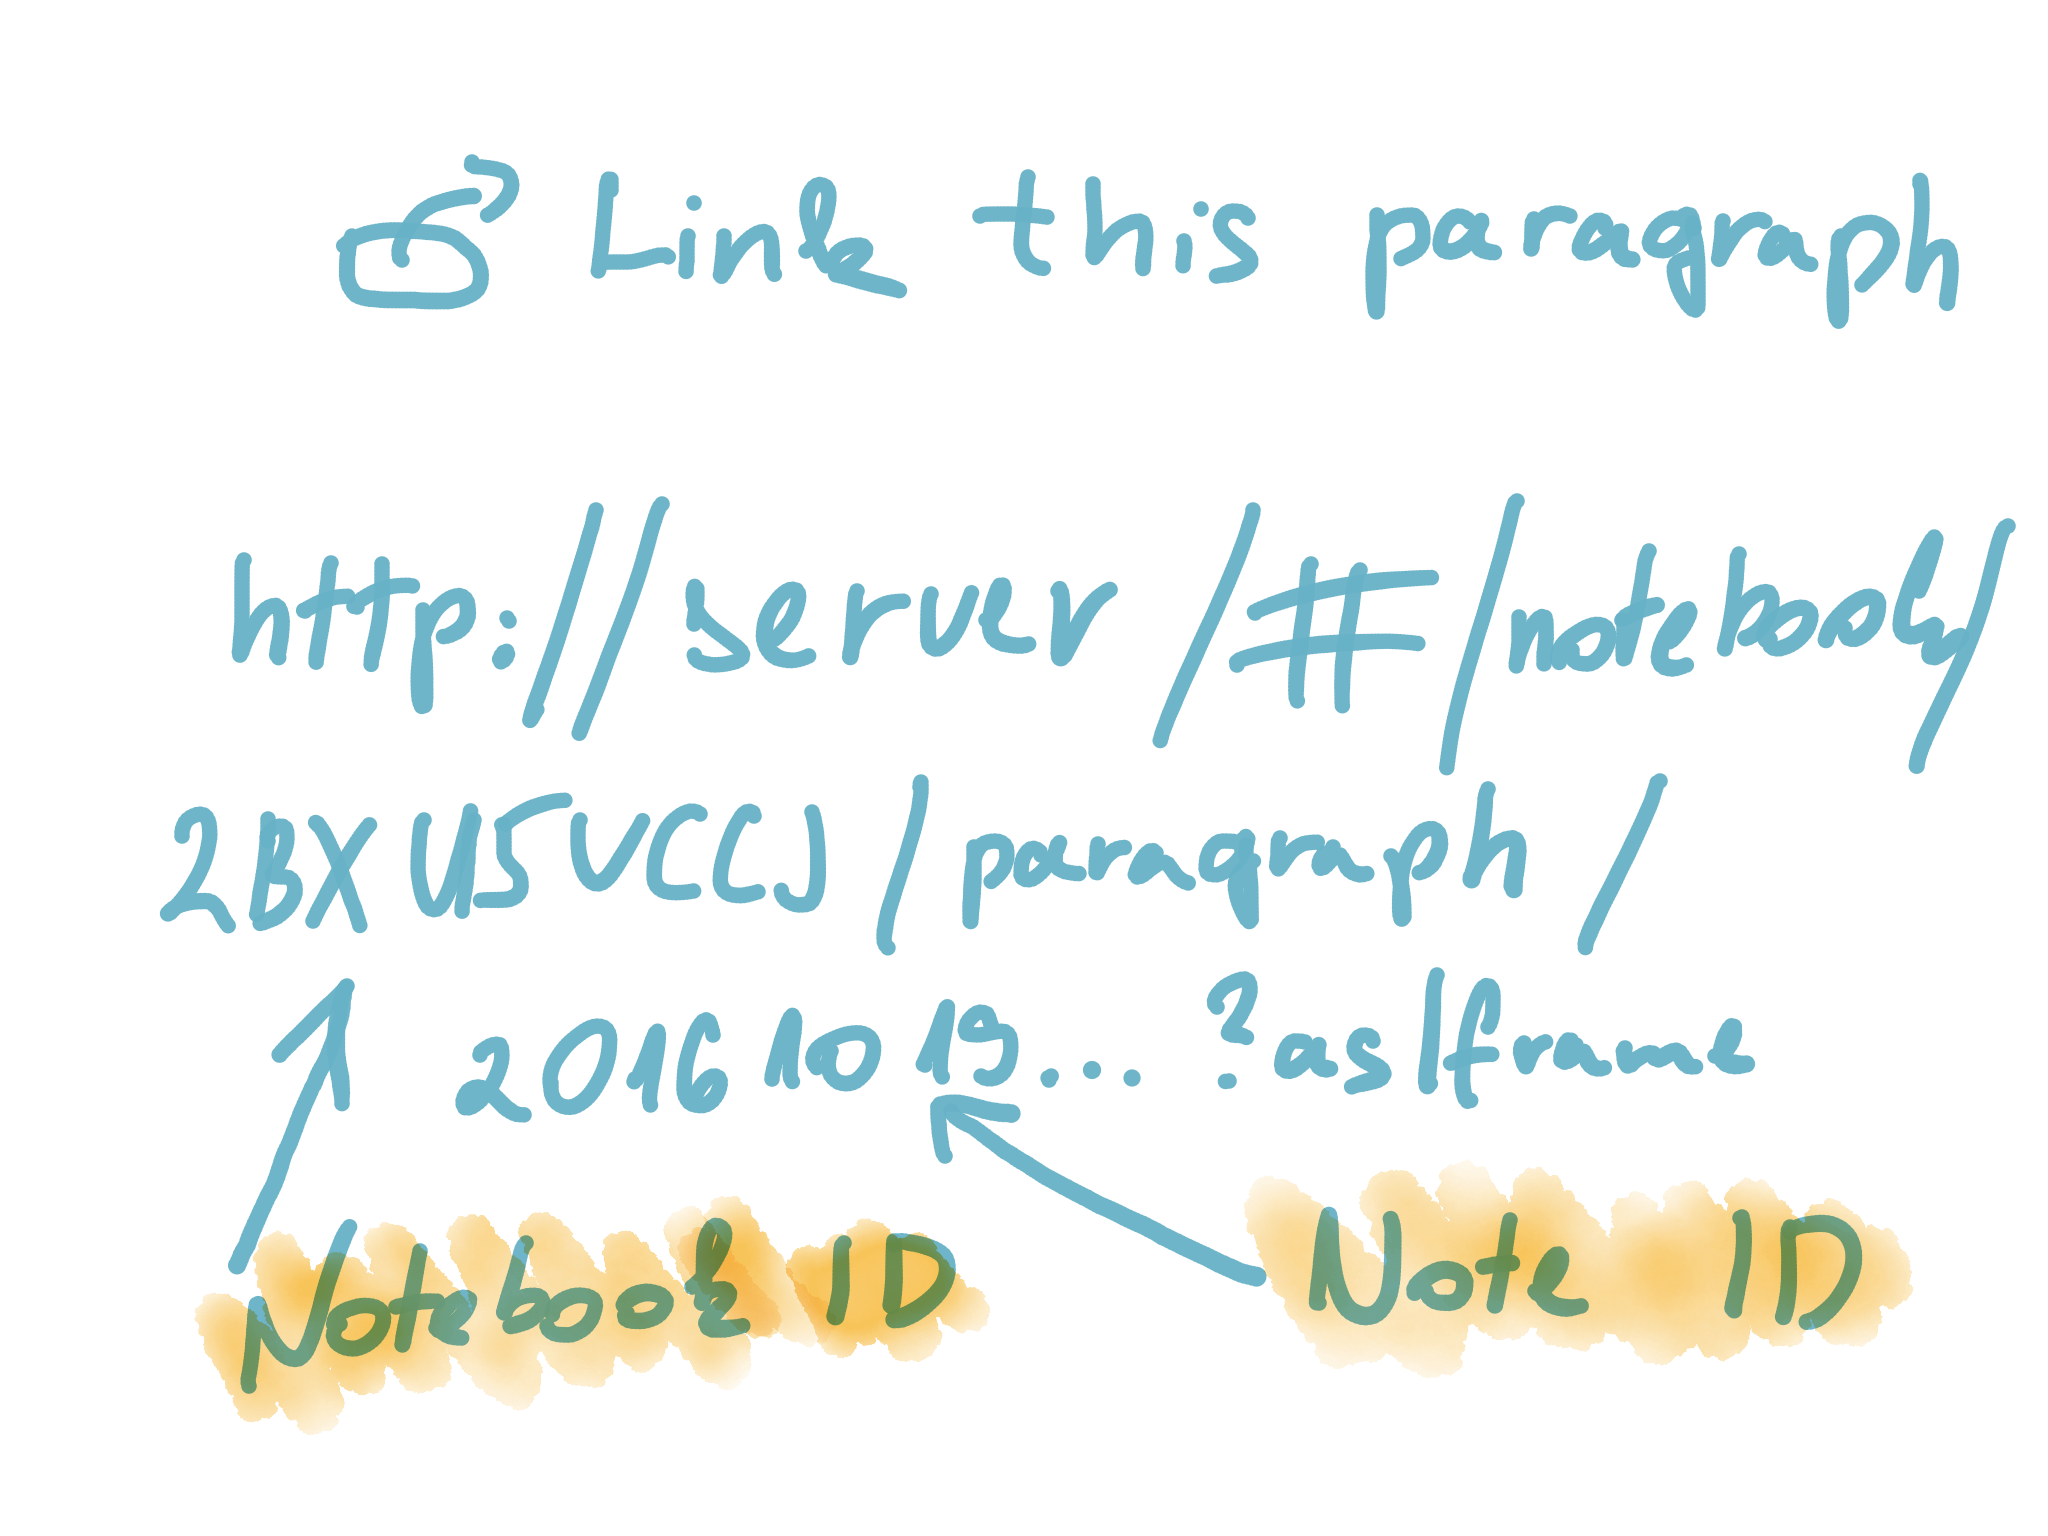 Link this paragraph
http://server/#/notebook/
2BXU5VCCJ/paragraph/
20161019... ?asIframe
Notebook ID
Note ID